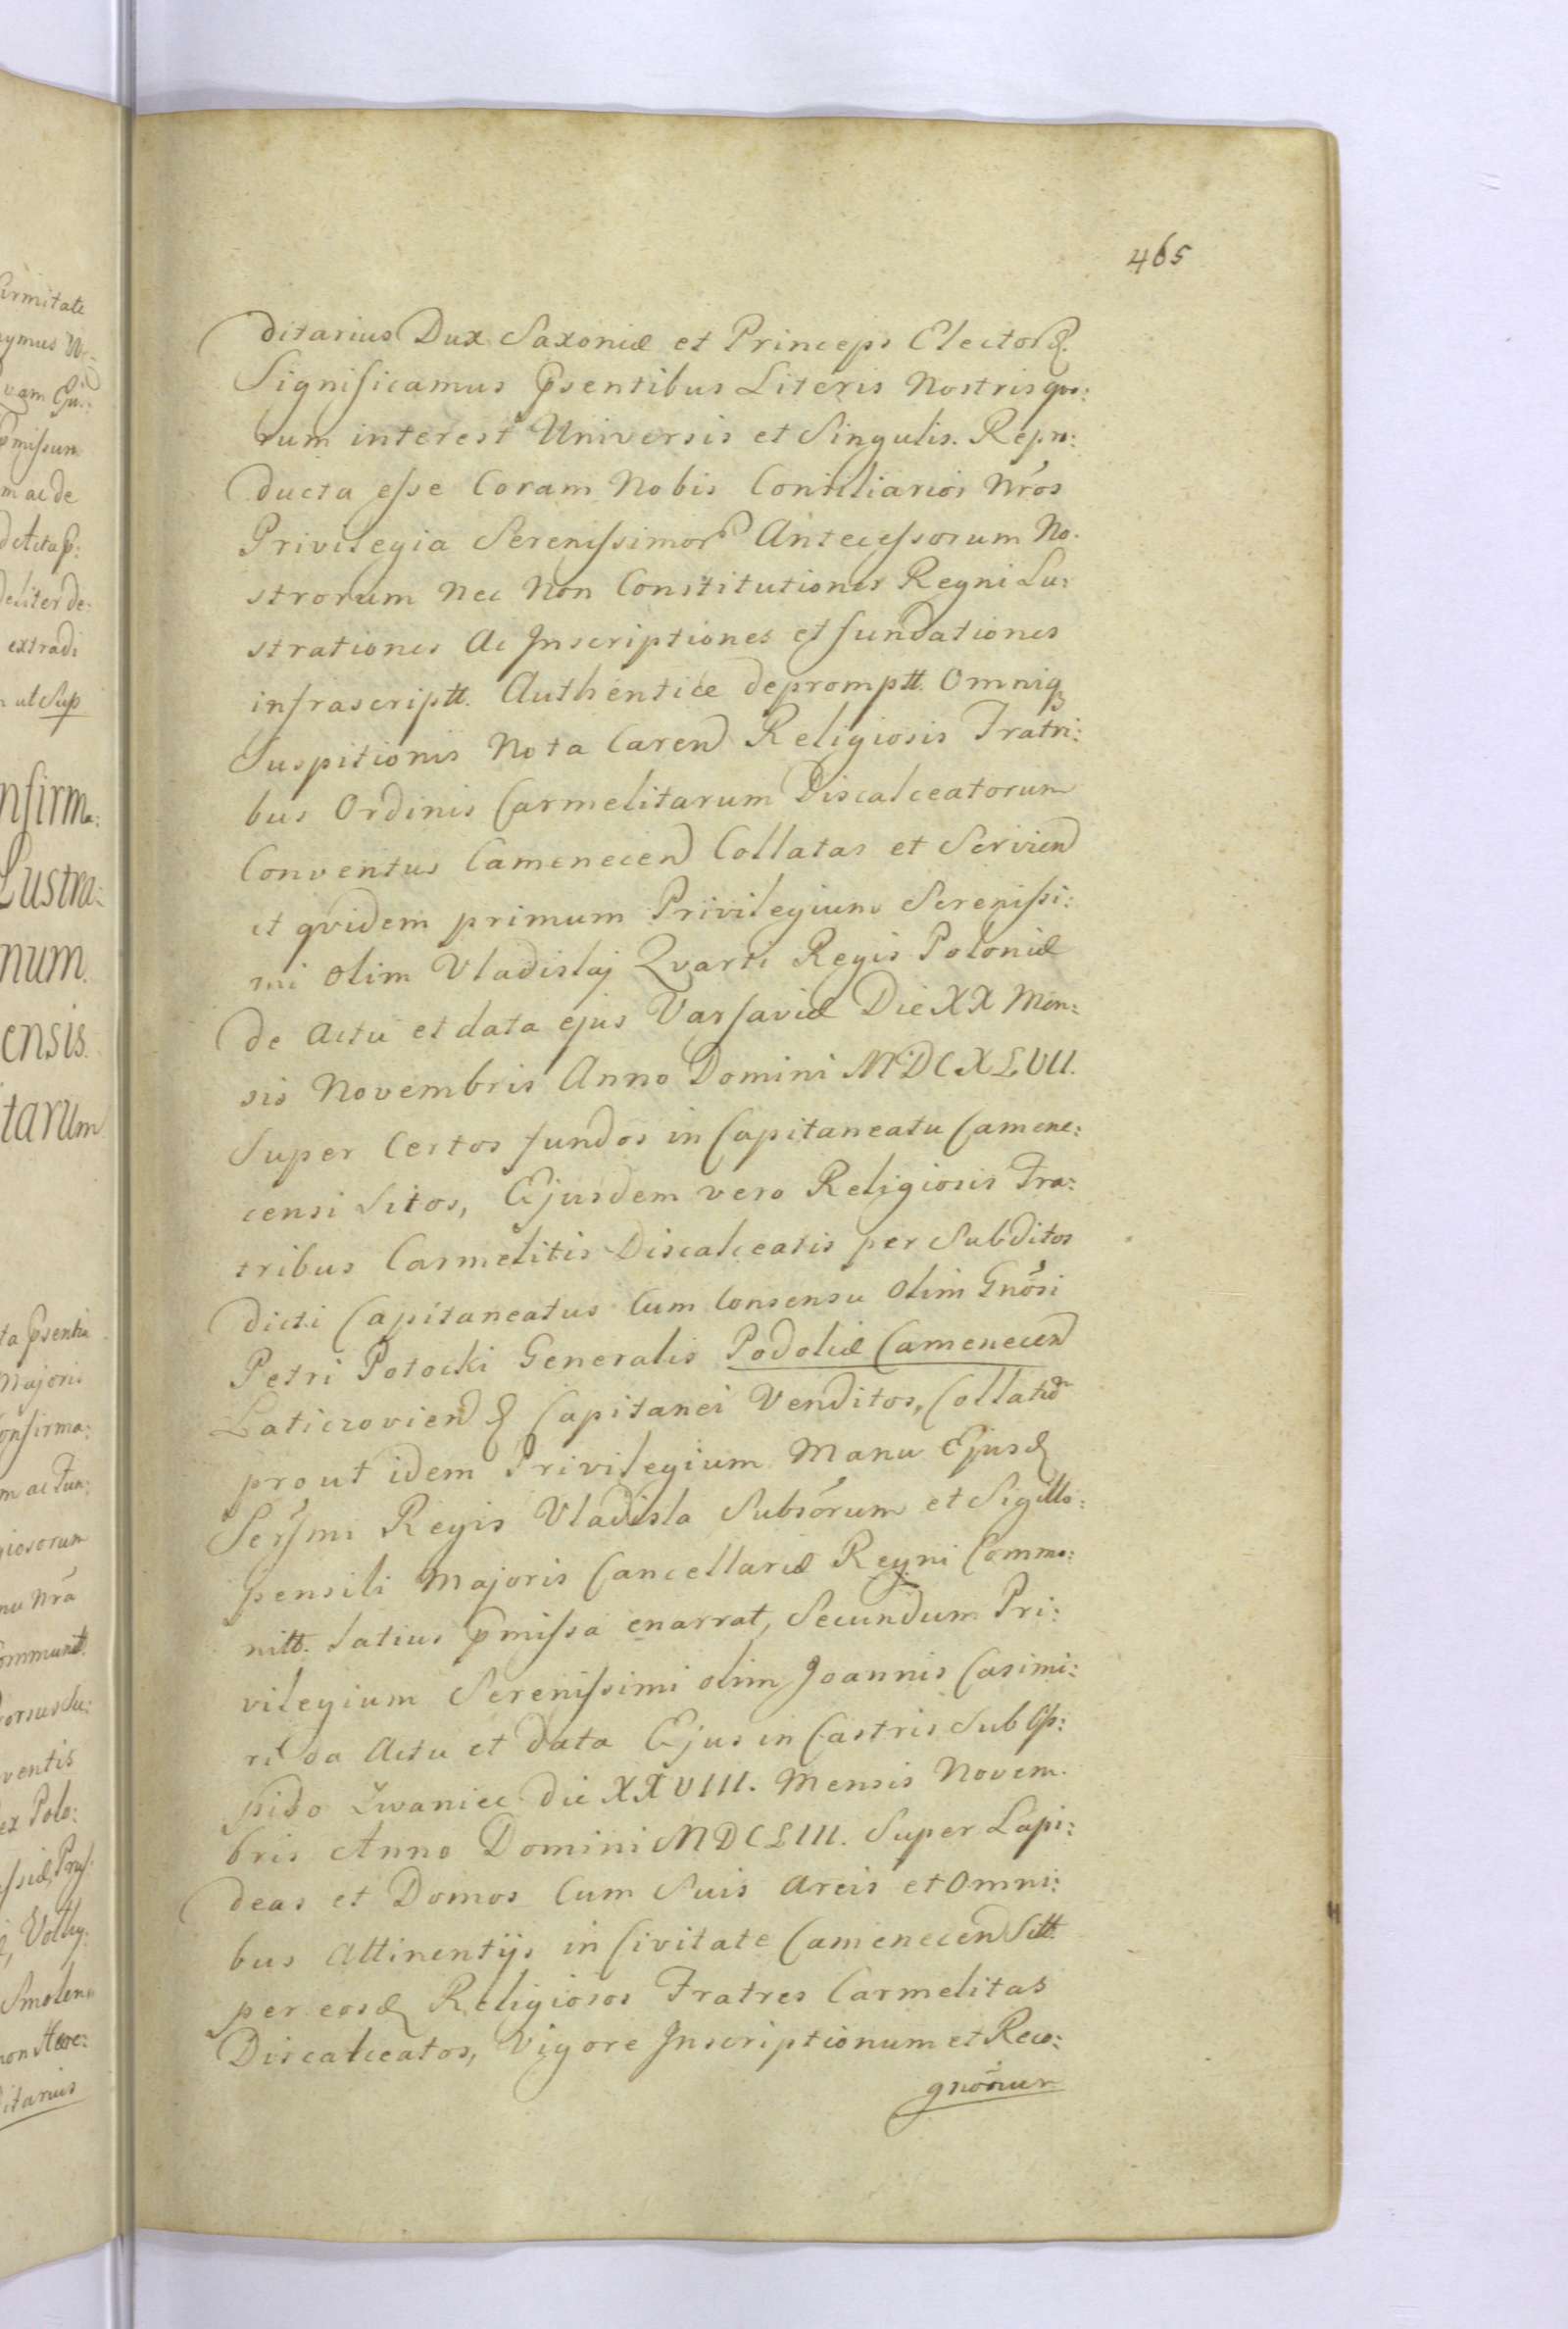 465
ditarius Dux Saxoniæ et Princeps Elector&.
Significamus Psentibus Literis Nostris quo:
rum interest Universis et Singulis. Repro:
ducta esse Coram Nobis Consiliarios Nros
Privilegia Serenissimor Antecessorum No.
strorum Nec Non Constitutiones Regni Lu:
strationes Ac Inscriptiones et fundationes
infrascriptt. Authentice depromptt. Omniq
Suspitionis Nota Caren Religiosis Fratri:
bus Ordinis Carmelitarum Discalceatorum
Conventus Camenecen Collatas et Servien
et qvidem primum Privilegium Serenissi:
mi olim Vladislaj Qvarti Regis Poloniæ
de Actu et data ejus Varsaviæ Die XX Men:
sis Novembris Anno Domini MDCXLVII.
Super Certos fundos in Capitaneatu Camene:
censi Sitos, Ejusdem vero Religiosis Fra:
tribus Carmelitis Discalceatis per Subditos
dicti Capitaneatus Cum Consensu Olim Gnosi
Petri Potocki Generalis Podoliæ Camenecen
Laticzovien & Capitanei Venditos, Collatu
prout idem Privilegium Manu Ejusd
Sersmi Regis Vladisla Subsorum et Sigillo:
pensili Majoris Cancellariæ Regni Commu:
nitt. latius Pmissa enarrat, Secundum Pri:
vilegium Serenissimi olim Joannis Casimi:
ri da Actu et data Ejus in Castris Sub Op:
pido Zwaniec die XXVIII. Mensis Novem.
bris Anno Domini MDCLIII. Super Lapi:
deas et Domos Cum Suis Areis et Omni:
bus Attinentijs in Civitate Camenecen Sitt.
per eosd Religiosos Fratres Carmelitas
Discalceatos, Vigore Inscriptionum et Reco:
gnonum